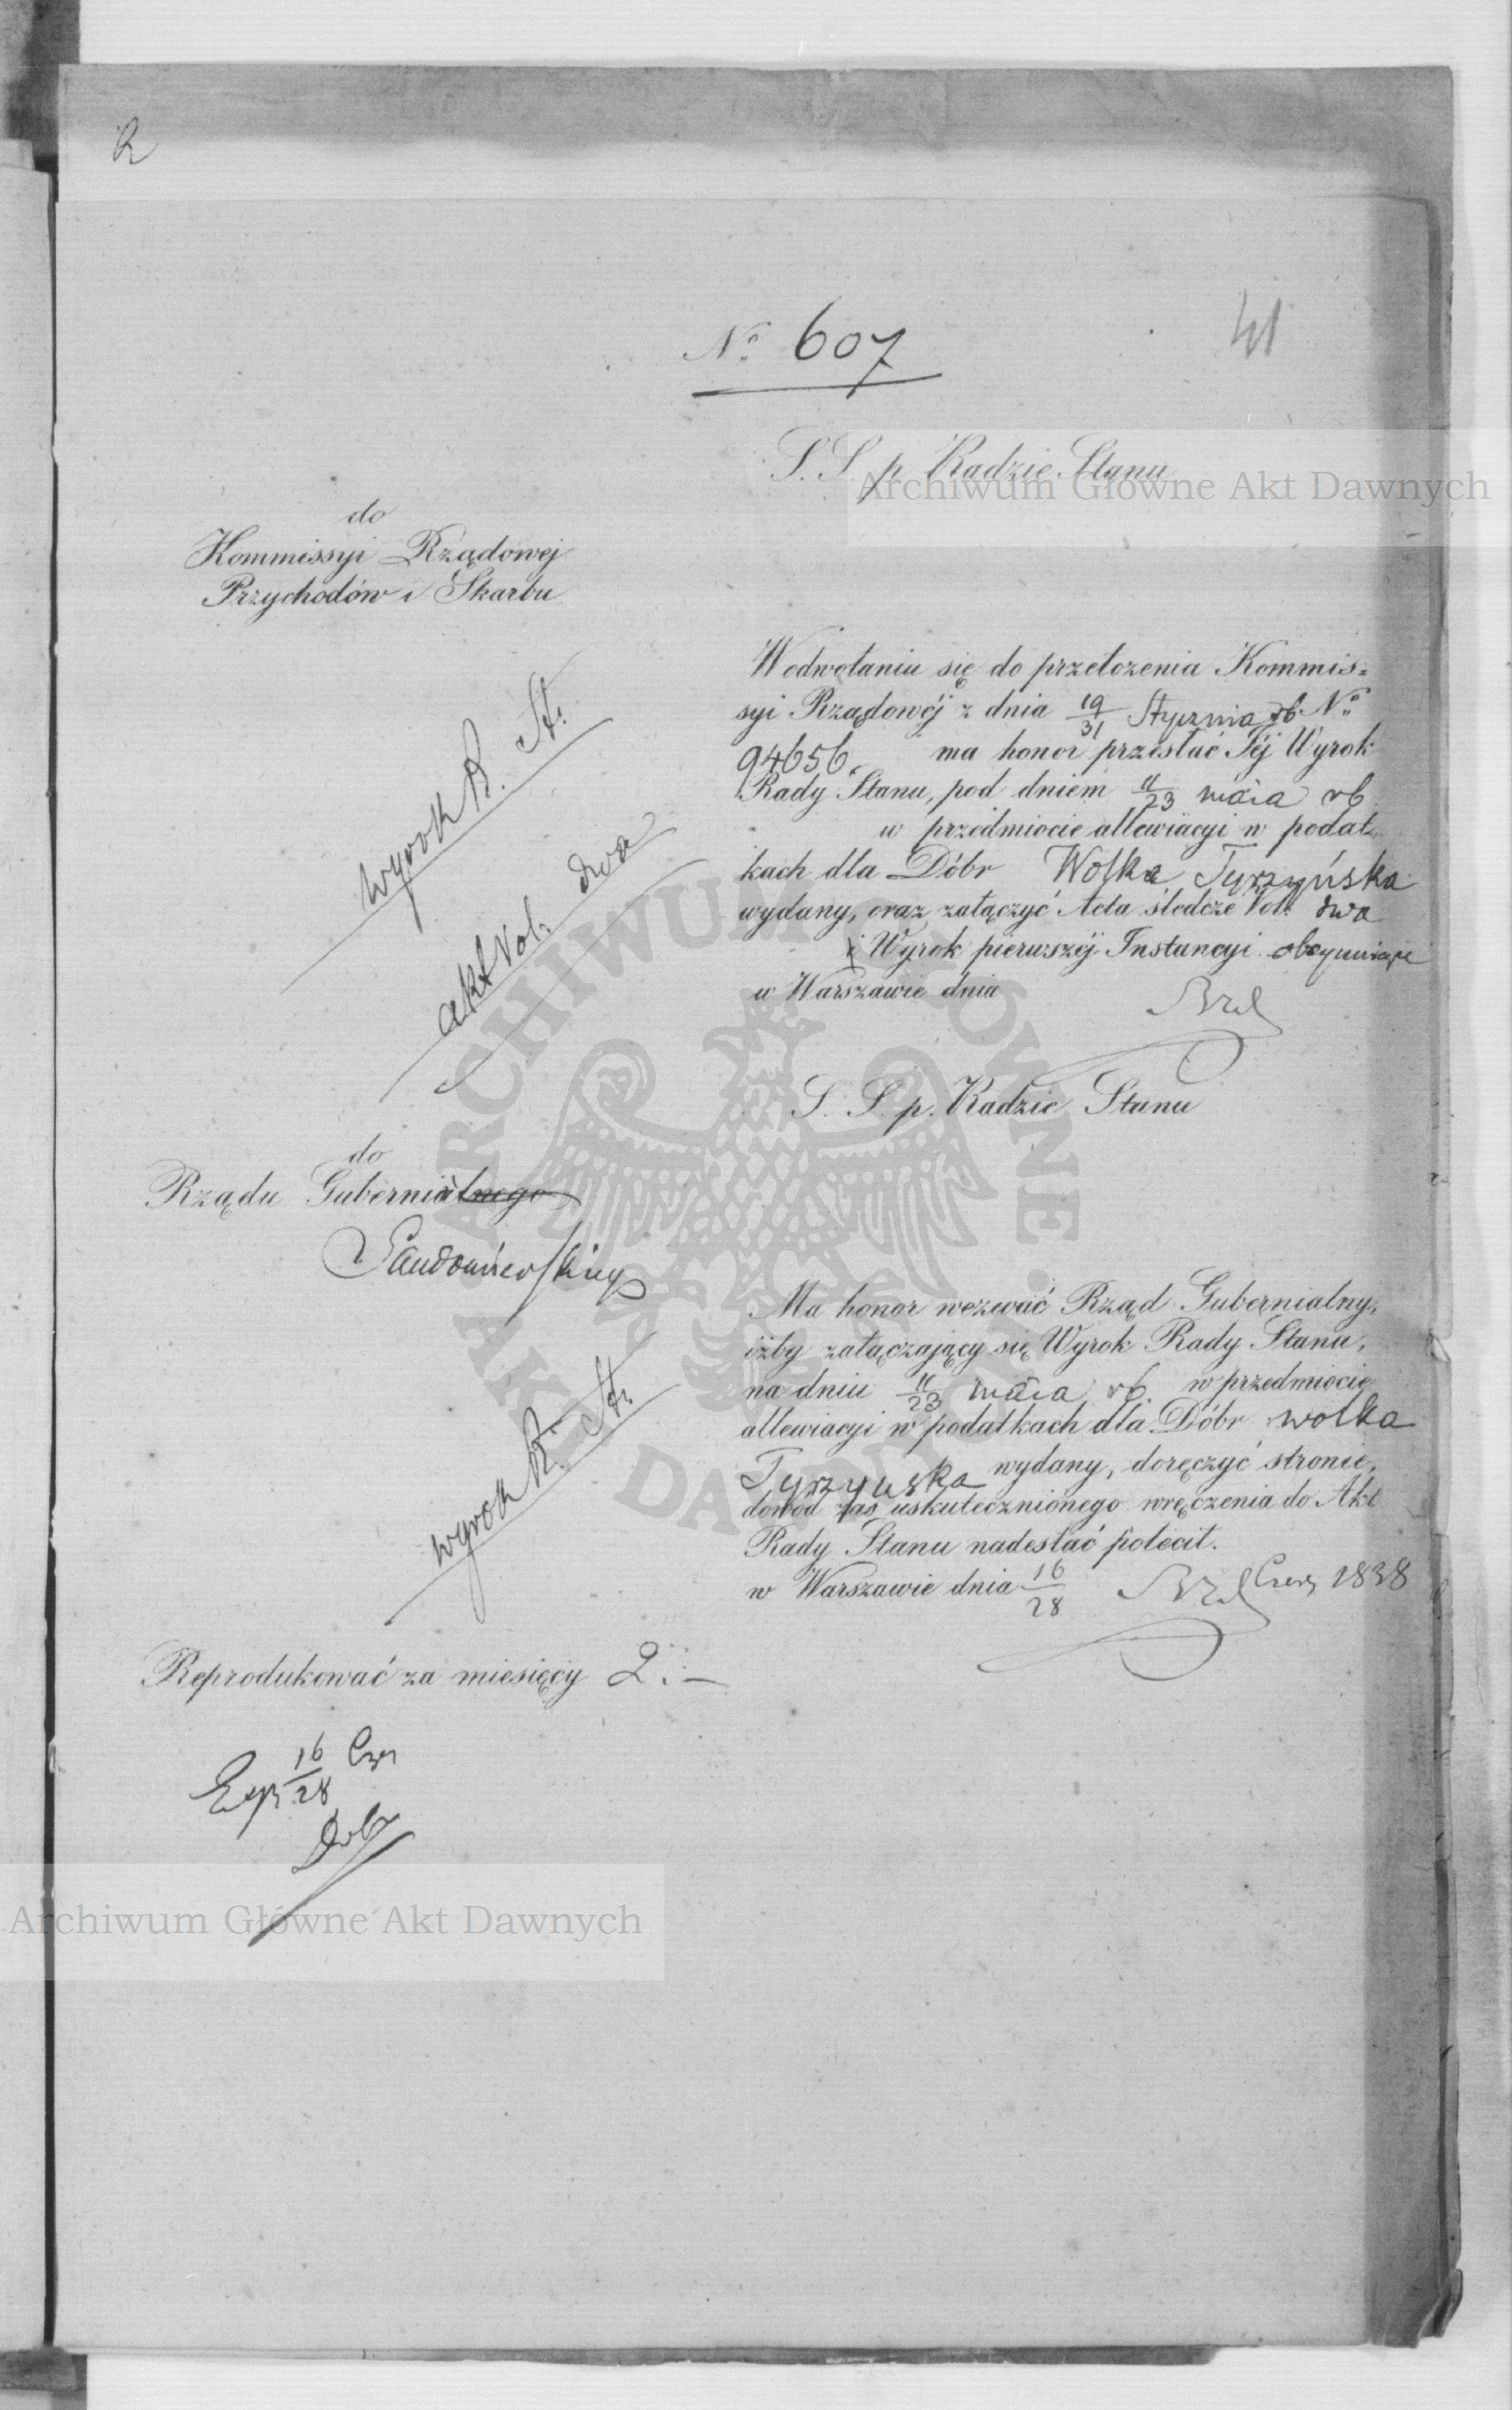 R
№ 607
41
S. S. p. Radzie Stanu
Archiwum Główne Akt Dawnych
do
Kommissyi Rządowej
Przychodów i Skarbu
W odwołaniu się do przełożenia Kommis=
syi Rządowéj z dnia 19/31 Stycznia rb. №
94656. ma honor przesłać Jéj Wyrok
Rady Stanu, pod dniem 11/23 maia rb
w przedmiocie allewiacyi w podat=
kach dla Dóbr Wolka Tyrzyńska
wydany, oraz załączyć Acta śledcze Vol: dwa
i Wyrok pierwszéj Instancyi obeymujące
w Warszawie dnia
wyrok R. St.
akt Vol. dwa
S. S. p. Radzie Stanu
do
Rządu Gubernialnego
Sandomierskiego
Ma honor wezwać Rząd Gubernialny,
iżby załączający się Wyrok Rady Stanu,
na dniu 11/23 maia rb. w przedmiocie
allewiacyi w podatkach dla Dóbr wolka
Tyrzyńska wydany, doręczyć stronie,
dowód zaś uskutecznionego wręczenia do Akt
Rady Stanu nadesłać polecił.
w Warszawie dnia 16/28 Czerw 1838
wyrok R. St.
Reprodukować za miesięcy 2.—
Exp 16/28 Czer
Archiwum Główne Akt Dawnych
ARCHIWUM GŁÓWNE
AKT DAWNYCH